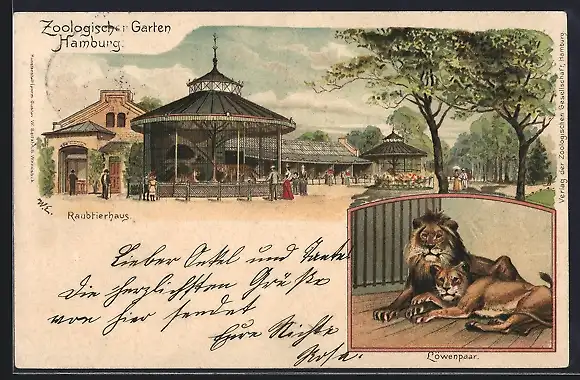 Zoologischer Garten
Hamburg.
Verlag der Zoologischen Gesellschaft, Hamburg.
W.E.
Raubtierhaus
Lieber Onkel und Tante
Die herzlichsten Grüße
von hier sendet
Eure Nichte
Rosa.
Löwenpaar.